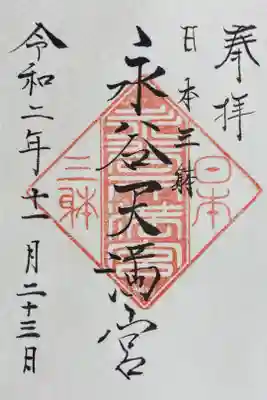 奉拝
日本三躰
永谷天満宮
令和二年十一月二十三日
日本
三躰